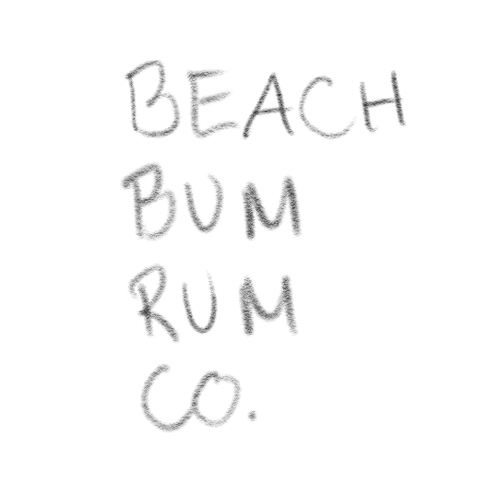 BEACH
BUM
RUM
CO.